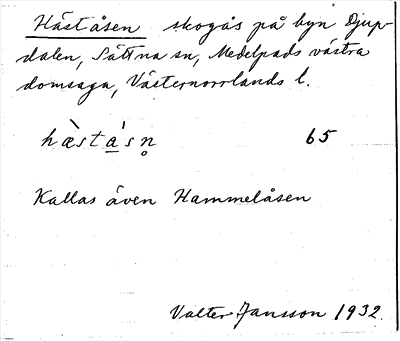 Häståsen skogås på byn Djup-
dalen, Sättna sn, Medelpads västra
domsaga, Västernorrlands l.
hæ̀stá̲sn̥ 65
Kallas även Hammelåsen
Valter Jansson 1932.